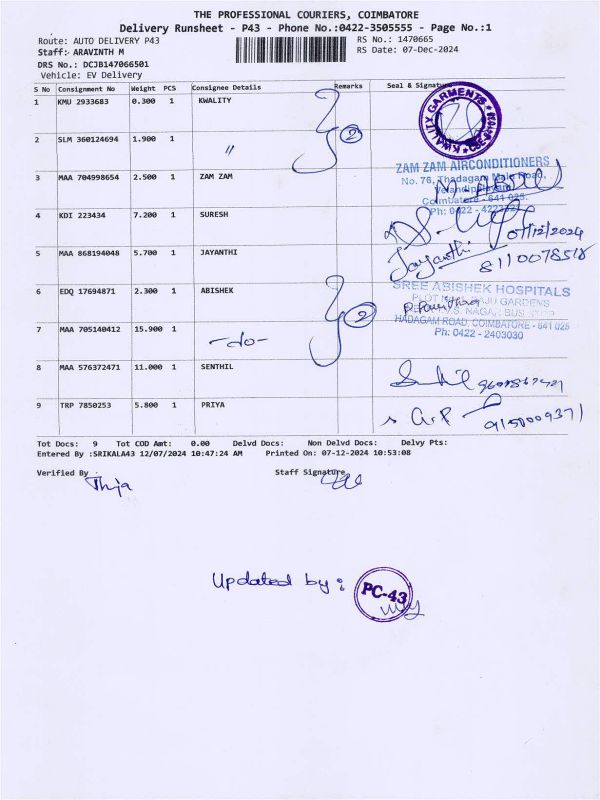 THE PROFESSIONAL COURIERS, COIMBATORE
Delivery Runsheet - P43 - Phone No.:0422-3505555 - Page No.:1
Route: AUTO DELIVERY P43
RS No.: 1470665
Staff: ARAVINTH M
RS Date: 07-Dec-2024
DRS No.: DCJB147066501
Vehicle: EV Delivery
S No Consignment No Weight PCS Consignee Details Remarks Seal & Signature
1 KMU 2933683 0.300 1 KWALITY
KWALITY GARMENTS
2 SLM 360124694 1.900 1 〃 2
3 MAA 704998654 2.500 1 ZAM ZAM
ZAM ZAM AIRCONDITIONERS
No. 76, Thadagam Main Road,
Coimbatore - 641 025.
Ph: 0422 -
4 KDI 223434 7.200 1 SURESH
07/12/2024
5 MAA 868194048 5.700 1 JAYANTHI Jayanthi
8110078518
6 EDQ 17694871 2.300 1 ABISHEK 2
SREE ABISHEK HOSPITALS
GARDENS
NAGAR BUS STOP
HADAGAM ROAD, COIMBATORE - 641 025
Ph: 0422 - 2403030
7 MAA 705140412 15.900 1 -do-
8 MAA 576372471 11.000 1 SENTHIL
9 TRP 7850253 5.800 1 PRIYA
9150009371
Tot Docs: 9 Tot COD Amt: 0.00 Delvd Docs: Non Delvd Docs: Delvy Pts:
Entered By :SRIKALA43 12/07/2024 10:47:24 AM Printed On: 07-12-2024 10:53:08
Verified By Staff Signature
Updated by :
PC-43